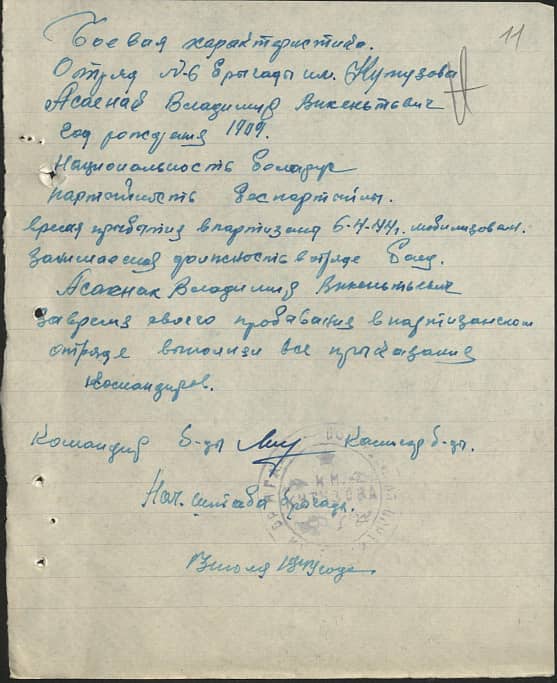 11
Боевая характеристика.
Отряд №6 Бригады им. Кутузова
Асаенак Владимир Викентьевич
год рождения 1909.
Национальность Беларус
партойность Беспартойны.
время прибытия в партизаны 6-4-44г. мобилизован.
Занимаемая должность в отряде Боец.
Асаенак Владимир Викентьевич
За время своего пробавания в партизанском
отряде выполнял все приказания
командиров.
Командир б-ды Комисар б-ды.
БРИГАДА ИМ. КУТУЗОВА
Нач. штаба бригады.
июля 1944 года.